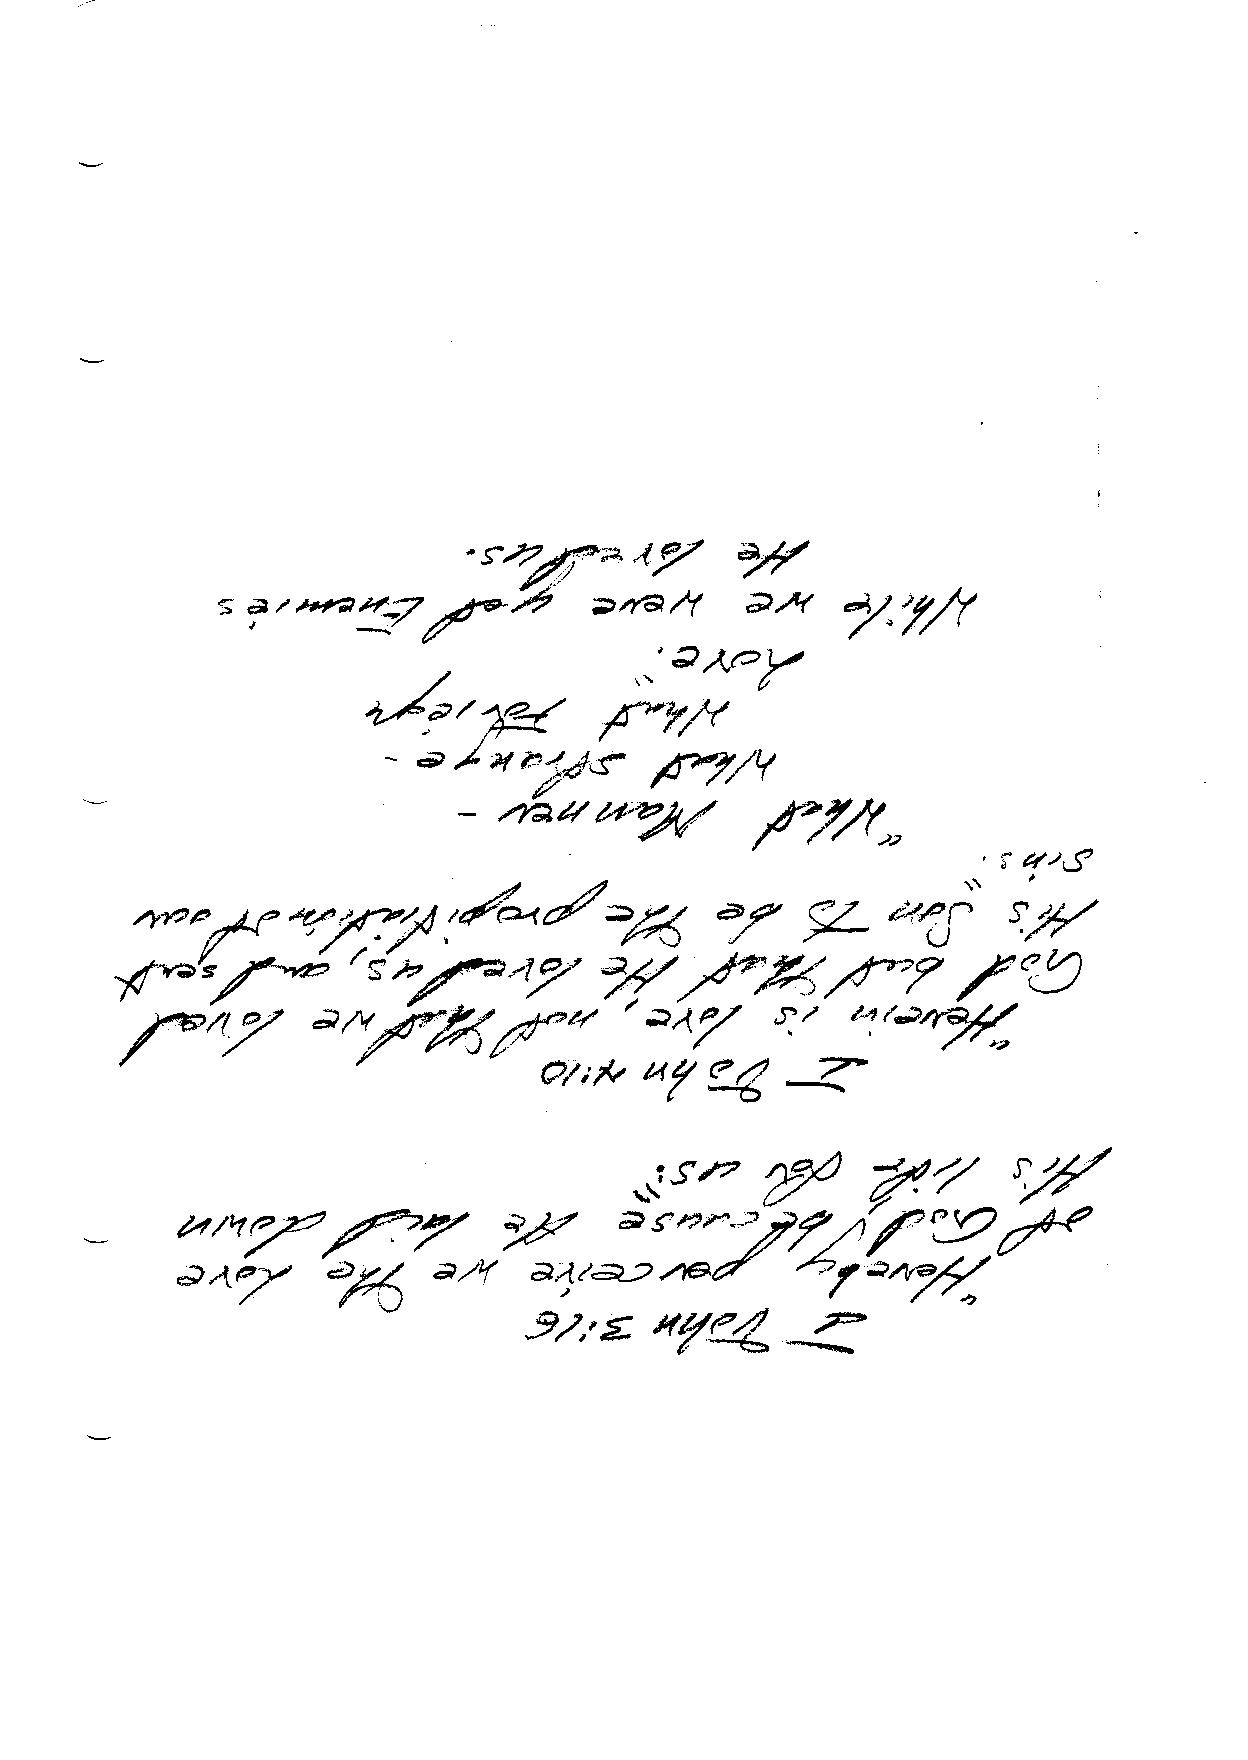 I John 3:16
"Hereby perceive we the Love
of God, because He laid down
His life for us:"
I John 4:10
"Herein is love, not that we loved
God but that He loved us, and sent
His Son To be the propitiation of our
sins."
"What Manner -
What strange -
What foreign
Love."
While we were yet Enemies
He loved us.